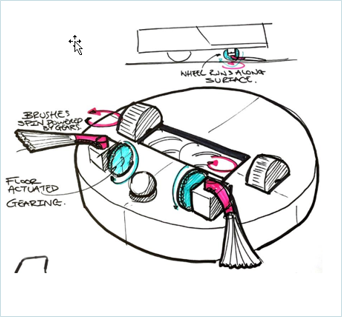 WHEEL RUNS ALONG
SURFACE.
BRUSHES
SPIN POWERED
BY GEARS.
FLOOR
ACTUATED
GEARING.